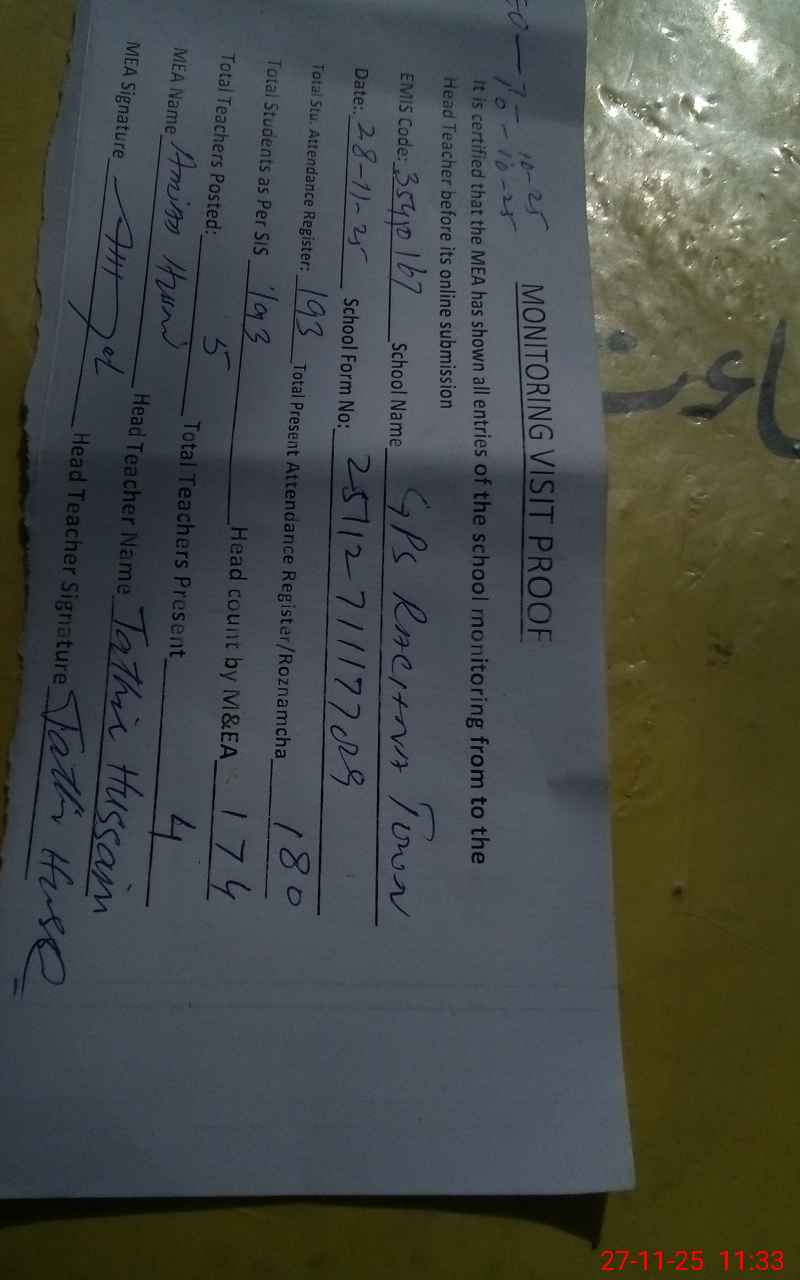 10-25
50-70-10-25
MONITORING VISIT PROOF
It is certified that the MEA has shown all entries of the school monitoring from to the
Head Teacher before its online submission
EMIS Code: 35440167 School Name GPS Rachna Town
Date: 28-11-25 School Form No: 2511271117709
Total Stu. Attendance Register: 193 Total Present Attendance Register/Roznamcha 180
Total Students as Per SIS 193 Head count by M&EA 174
Total Teachers Posted: 5 Total Teachers Present 4
MEA Name Head Teacher Name Tathir Hussain
MEA Signature Head Teacher Signature Tathir
27-11-25 11:33